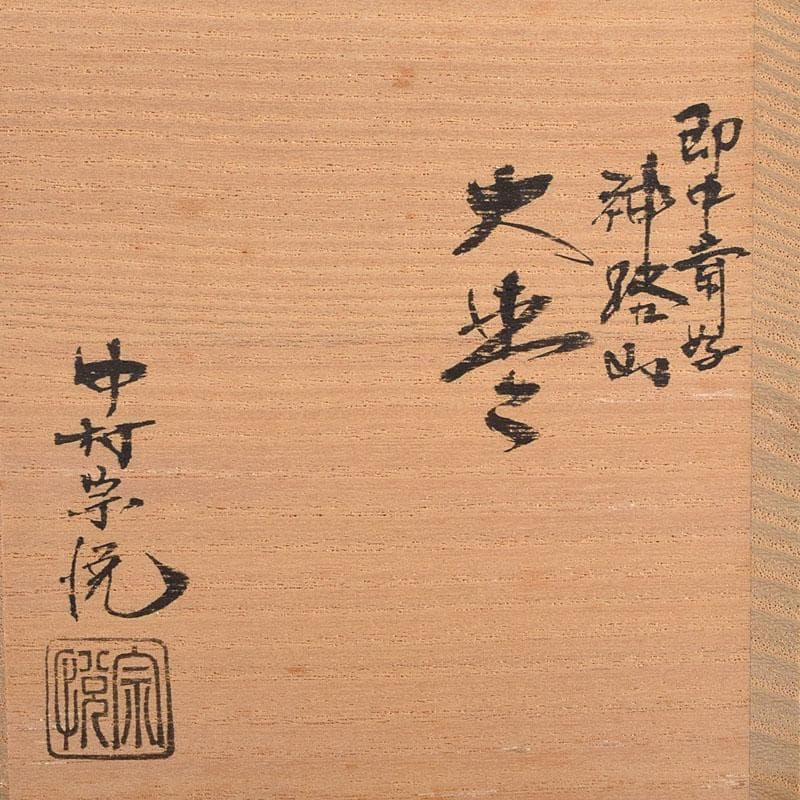 即中斎好
神路山
棗
中村宗悦
宗悦